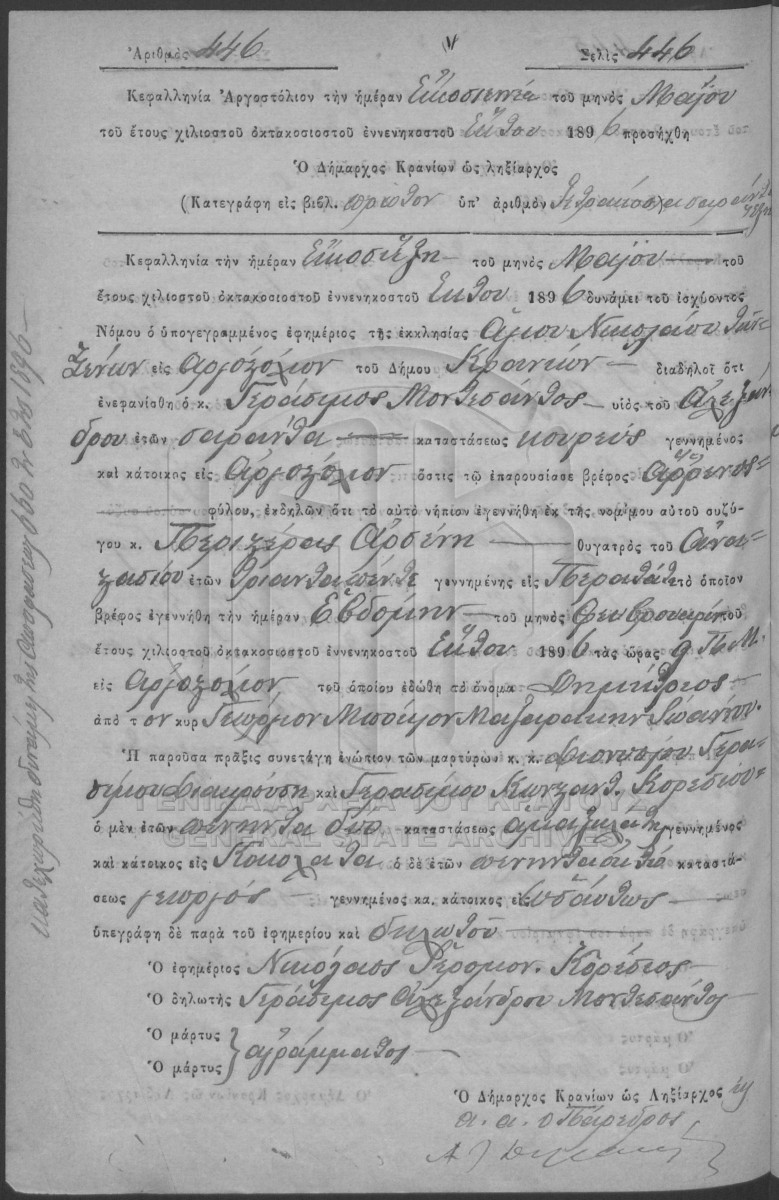 Ἀριθμὸς 446
Σελὶς 446
Κεφαλληνία Ἀργοστόλιον τὴν ἡμέραν Εἰκοστὴν τοῦ μηνὸς Μαΐου
τοῦ ἔτους χιλιοστοῦ ὀκτακοσιοστοῦ ἐννενηκοστοῦ Ἕκτου 1896 προσήχθη
Ὁ Δήμαρχος Κρανίων ὡς ληξίαρχος
(Κατεγράφη εἰς βιβλ. πρῶτον ὑπ' ἀριθμὸν τετρακόσια σαράντα
ἕξη
Κεφαλληνία τὴν ἡμέραν Εἰκοσιέξη τοῦ μηνὸς Μαΐου τοῦ
ἔτους χιλιοστοῦ ὀκτακοσιοστοῦ ἐννενηκοστοῦ Ἕκτου 1896 δυνάμει τοῦ ἰσχύοντος
Νόμου ὁ ὑπογεγραμμένος ἐφημέριος τῆς ἐκκλησίας Ἁγίου Νικολάου τῶν
Ξένων εἰς Ἀργοστόλιον τοῦ Δήμου Κρανίων διαδηλοῖ ὅτι
ἐνεφανίσθη ὁ κ. Γεράσιμος Μοντεσάντος υἱὸς τοῦ Ἀλεξάν=
δρου ἐτῶν σαράντα καταστάσεως κουρεὺς γεννημένος
καὶ κάτοικος εἰς Ἀργοστόλιον ὅστις τῷ ἐπαρουσίασε βρέφος ἄρρενος
φύλου, ἐκδηλῶν ὅτι τὸ αὐτὸ νήπιον ἐγεννήθη ἐκ τῆς νομίμου αὐτοῦ συζύ-
γου κ. Περιστερᾶς Ἀρσένη θυγατρὸς τοῦ Ἀνα=
στασίου ἐτῶν τριανταπέντε γεννημένης εἰς Περατάτα τὸ ὁποῖον
βρέφος ἐγεννήθη τὴν ἡμέραν Ἑβδόμην τοῦ μηνὸς Φεβρουαρίου τοῦ
ἔτους χιλιοστοῦ ὀκτακοσιοστοῦ ἐννενηκοστοῦ Ἕκτου 1896 τὰς ὥρας 9 π.μ.
εἰς Ἀργοστόλιον τοῦ ὁποίου ἐδόθη τὸ ὄνομα Δημήτριος
ἀπὸ τὸν κυρ Γεώργιον Μαζαράκην Ἰωάννου.
Ἡ παροῦσα πρᾶξις συνετάγη ἐνώπιον τῶν μαρτύρων κ. κ. Διονυσίου Γερα=
σίμου Διακρούση καὶ Γερασίμου Κωνσταντ. Κορεσίου=
ὁ μὲν ἐτῶν πενήντα δύο καταστάσεως ἁμαξηλάτη γεννημένος
καὶ κάτοικος εἰς Κοκολάτα ὁ δὲ ἐτῶν πενηνταοκτὼ καταστά-
σεως γεωργὸς γεννημένος κα. κάτοικος εἰς ὡσαύτως
ὑπεγράφη δὲ παρὰ τοῦ ἐφημερίου καὶ δηλωτοῦ
Ὁ ἐφημέριος Νικόλαος Ἱερομον. Κορέσιος
Ὁ δηλωτὴς Γεράσιμος Ἀλεξάνδρου Μοντεσάντος
Ὁ μάρτυς
Ὁ μάρτυς } ἀγράμματος
Ὁ Δήμαρχος Κρανίων ὡς Ληξίαρχος
α. α. ὁ Πάρεδρος
ΓΕΝΙΚΑ ΑΡΧΕΙΑ ΤΟΥ ΚΡΑΤΟΥΣ
GENERAL STATE ARCHIVES